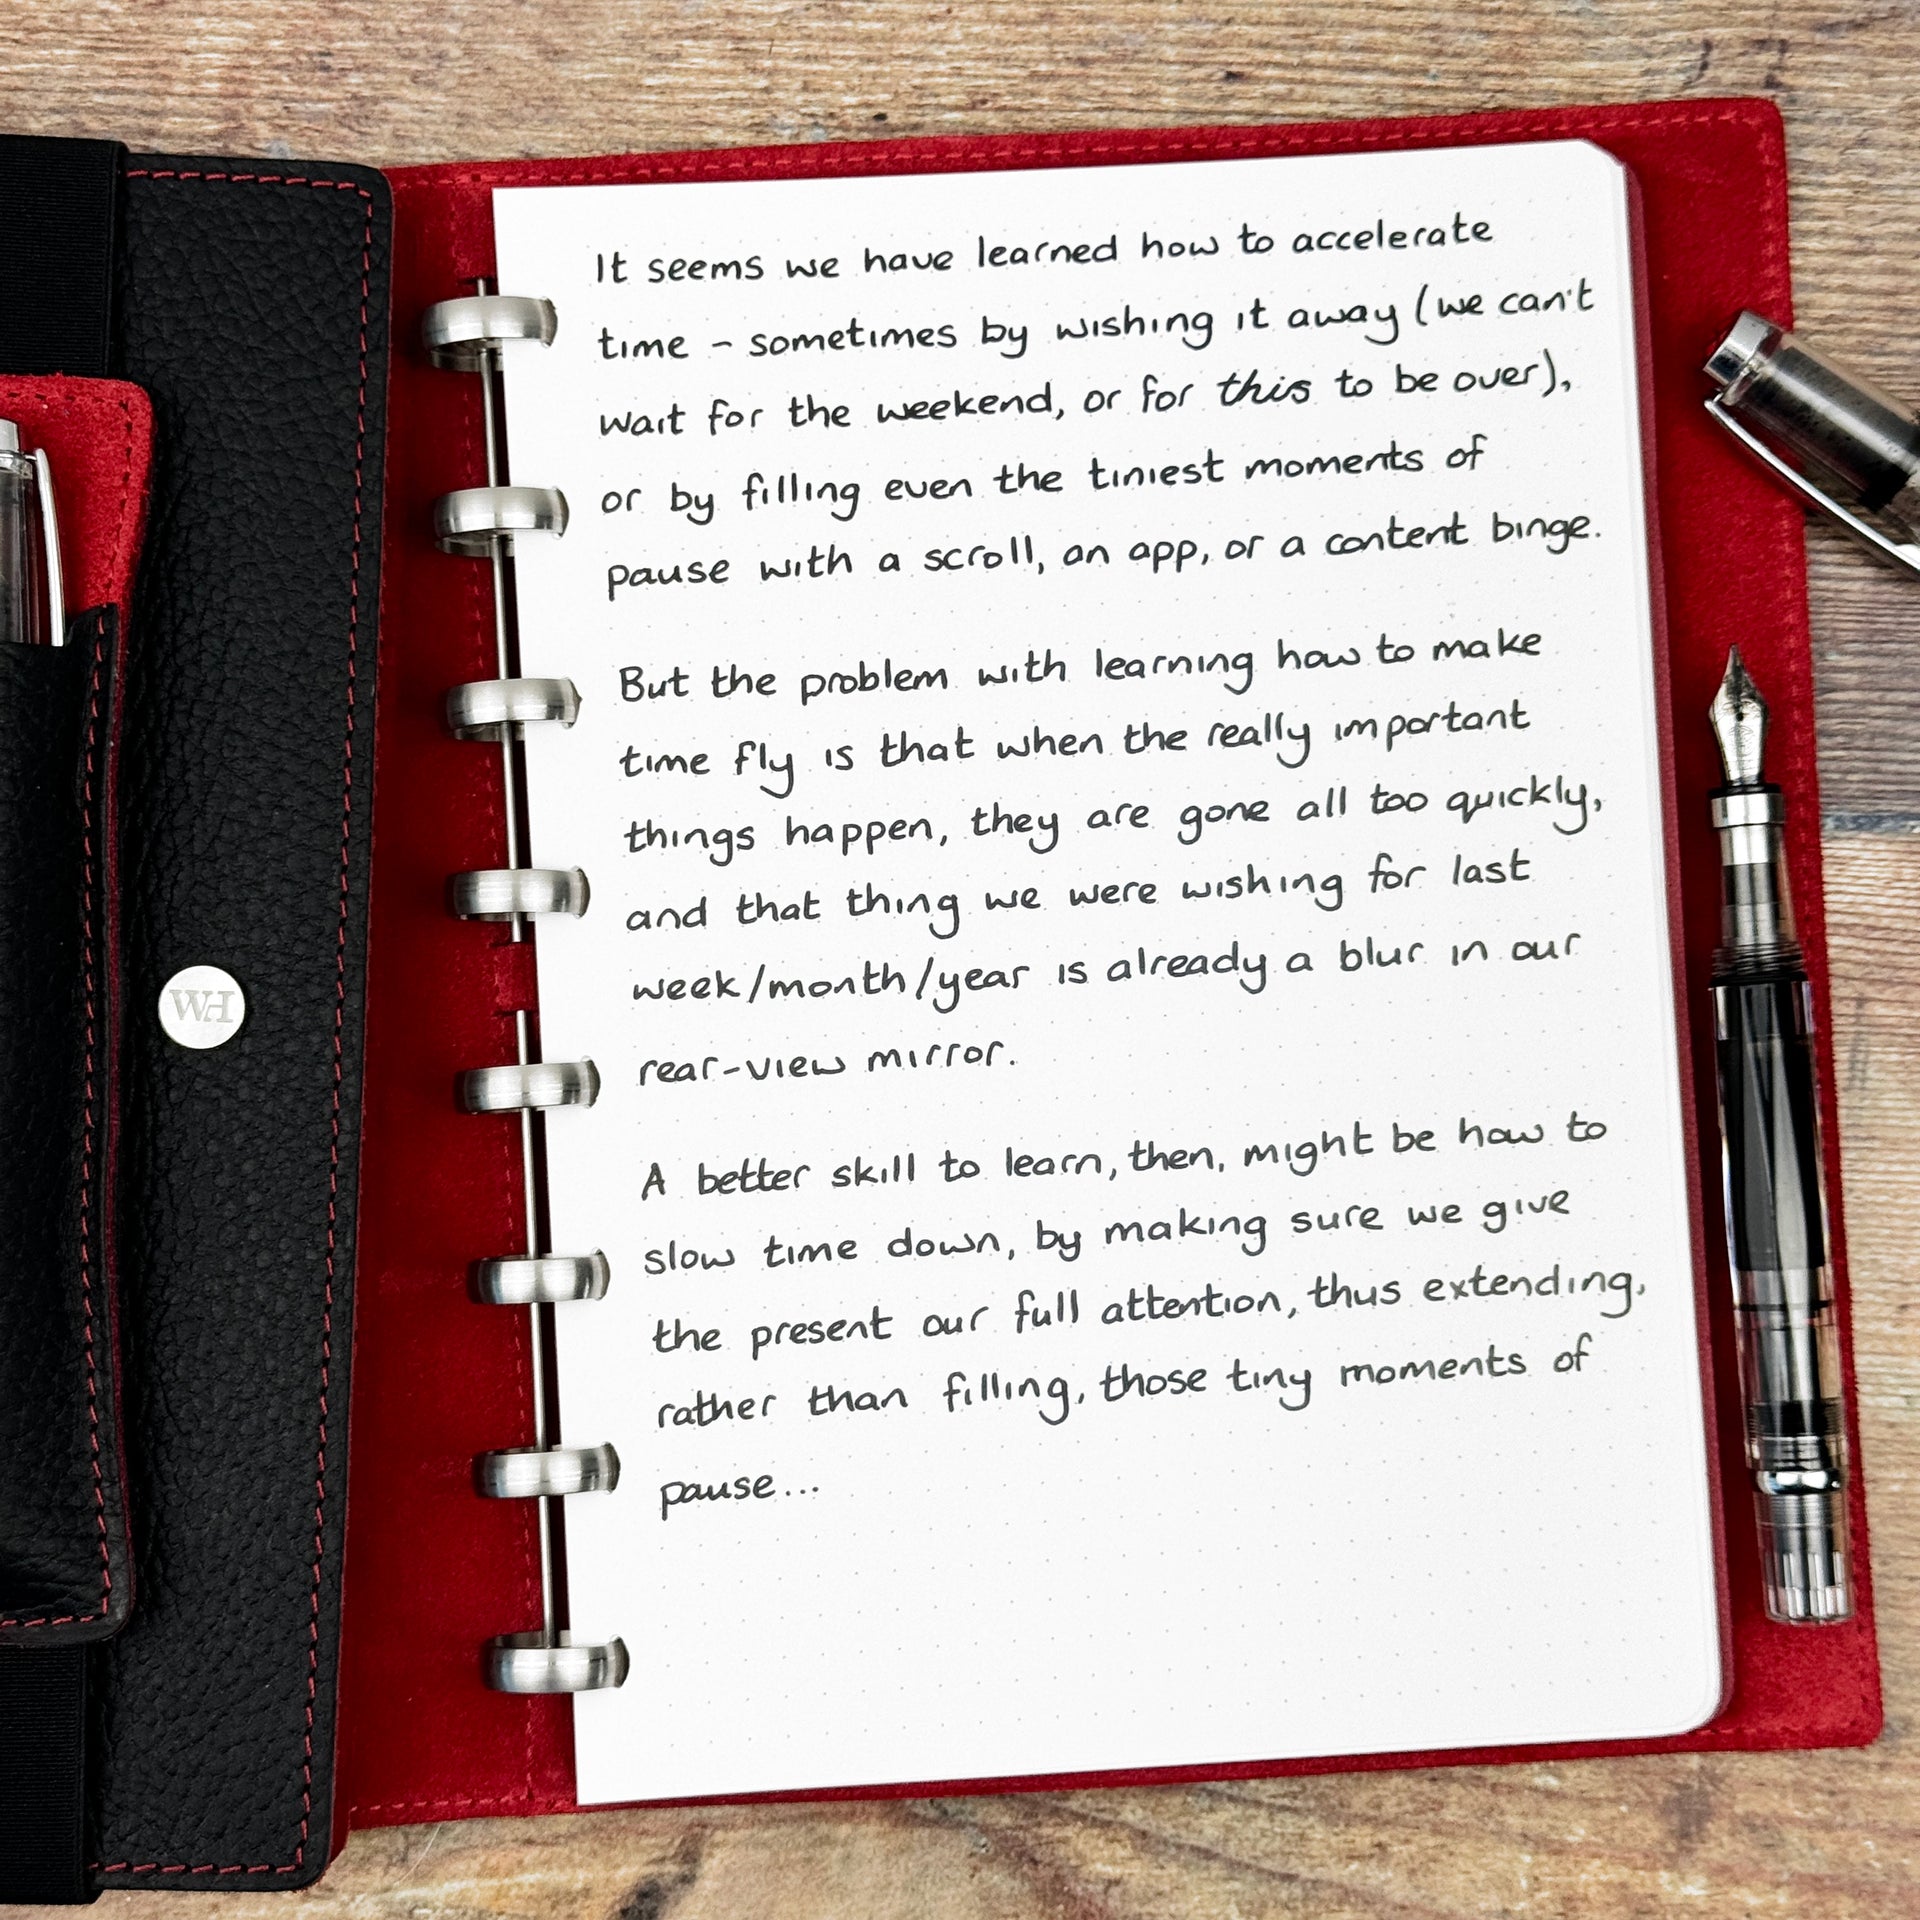 It seems we have learned how to accelerate
time - sometimes by wishing it away (we can't
wait for the weekend, or for this to be over),
or by filling even the tiniest moments of
pause with a scroll, an app, or a content binge.
But the problem with learning how to make
time fly is that when the really important
things happen, they are gone all too quickly,
and that thing we were wishing for last
week/month/year is already a blur in our
rear-view mirror.
A better skill to learn, then, might be how to
slow time down, by making sure we give
the present our full attention, thus extending,
rather than filling, those tiny moments of
pause...
WH